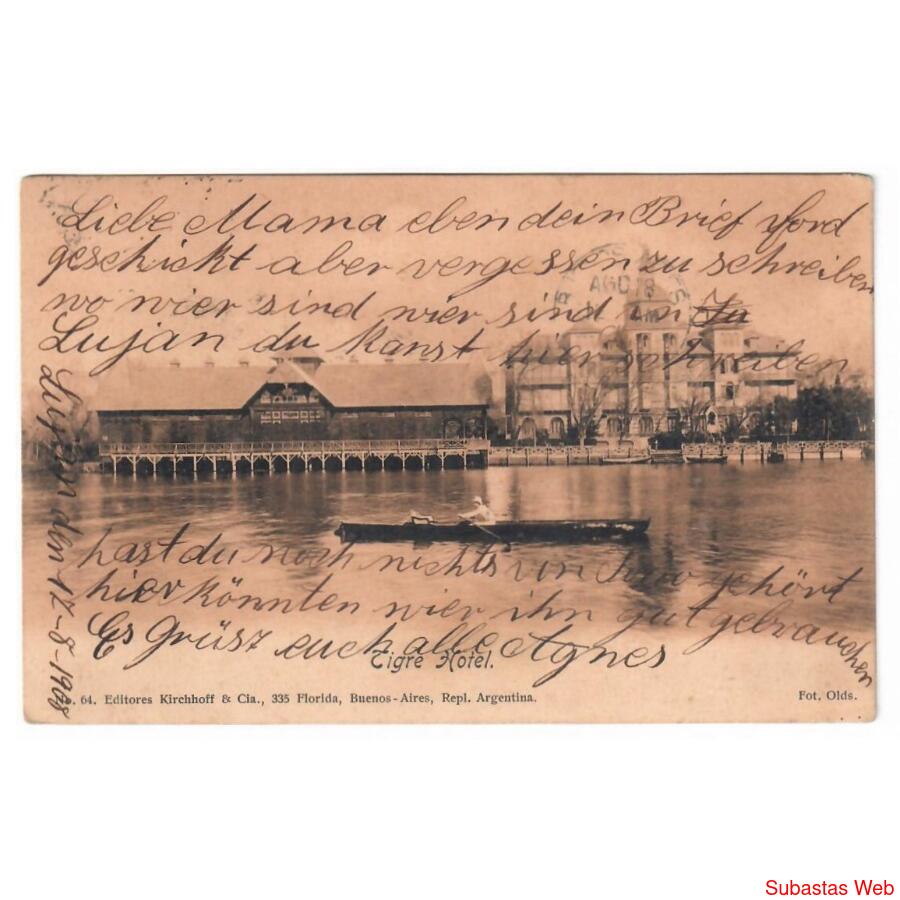 Liebe Mama eben dein Brief ford
geschickt aber vergessen zu schreiben
wo wier sind wier sind in
Lujan du kanst hier schreiben
hast du noch nichts von gehört
hier könnten wier ihn gut gebrauchen
Es Grüsz euch alle Agnes
Lujan den 12-8-1908
AGO
Tigre Hotel.
64. Editores Kirchhoff & Cia., 335 Florida, Buenos-Aires, Repl. Argentina.
Fot. Olds.
Subastas Web